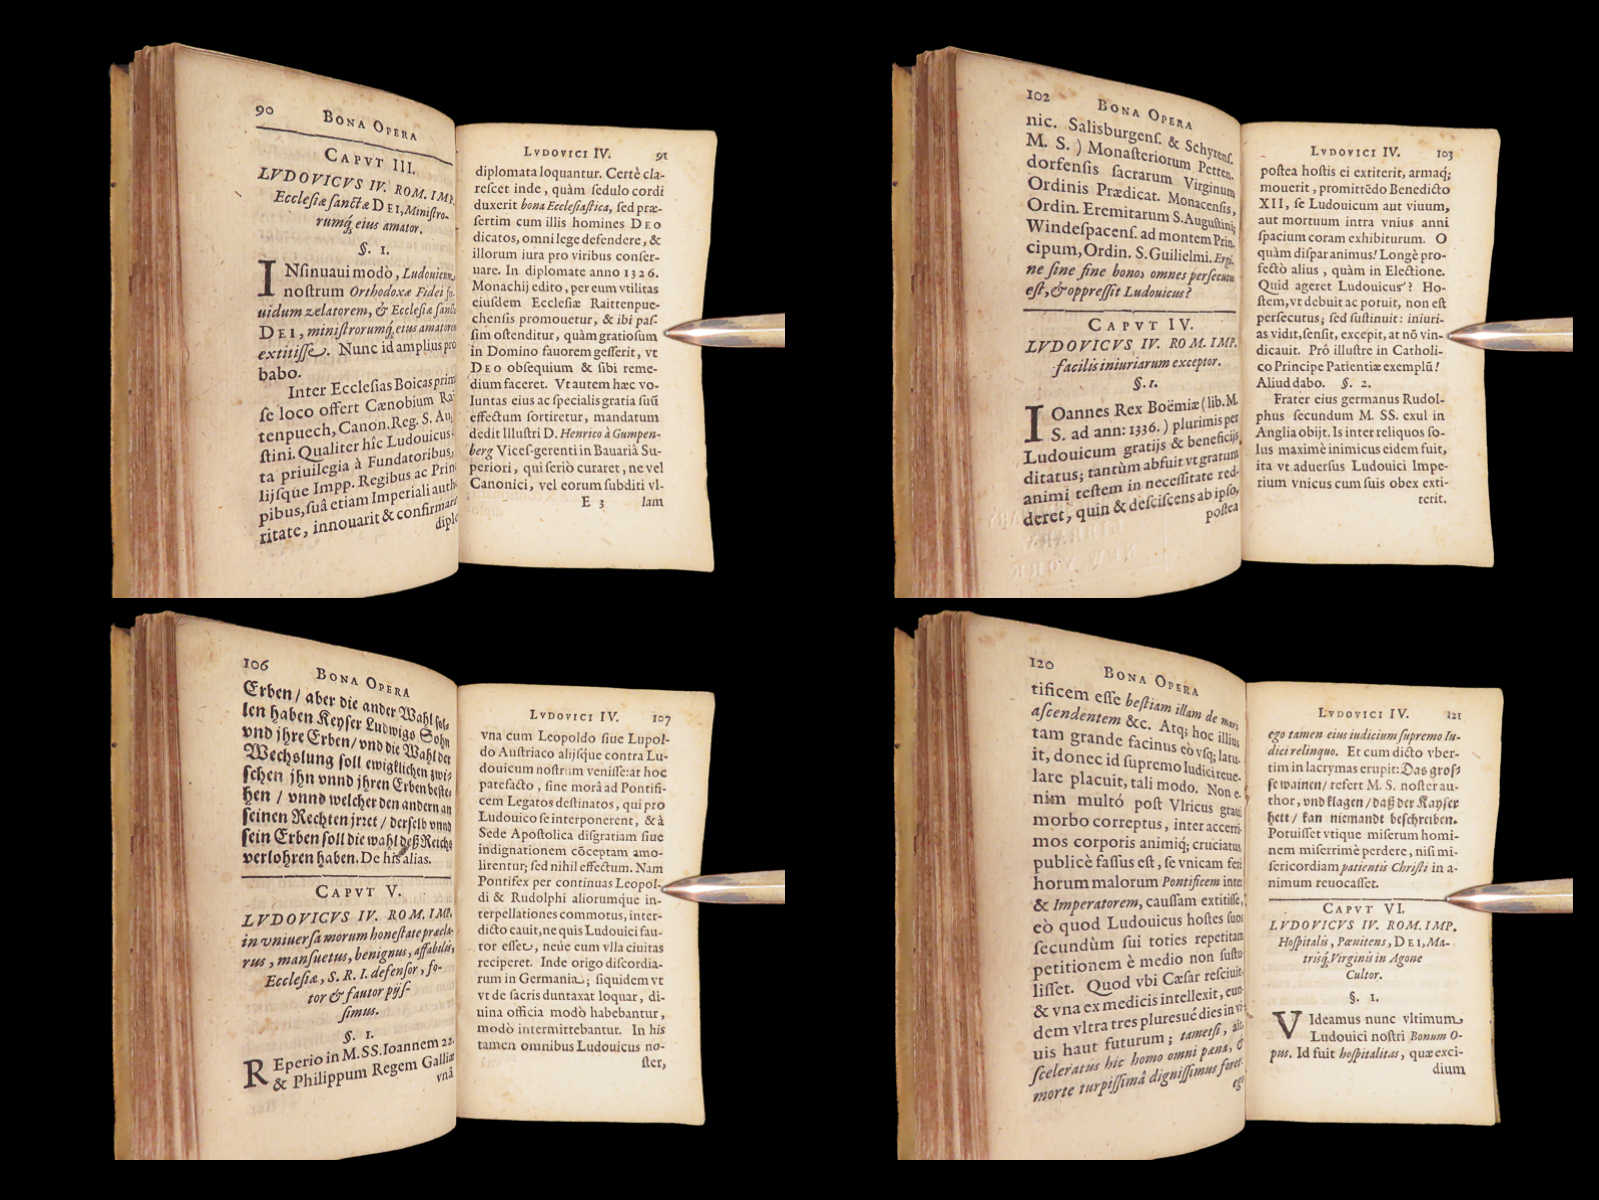 90 BONA OPERA
CAPVT III.
LVDOVICVS IV. ROM. IMP.
Ecclesiæ sanctæ DEI, Ministro-
rumq́; eius amator.
§. 1.
INsinuaui modò, Ludouicum
nostrum Orthodoxæ Fidei
uidum zelatorem, & Ecclesiæ
DEI, ministrorumq́; eius amatorem
extitisse. Nunc id amplius pro
babo.
Inter Ecclesias Boicas
se loco offert Cænobium
tenpuech, Canon. Reg. S.
stini. Qualiter hîc Ludouicus
ta priuilegia à Fundatoribus,
lijsque Impp. Regibus ac
pibus, suâ etiam Imperiali
ritate, innouarit &
LVDOVICI IV. 91
diplomata loquantur. Certè cla-
rescet inde, quàm sedulo cordi
duxerit bona Ecclesiastica, sed præ-
sertim cum illis homines DEO
dicatos, omni lege defendere, &
illorum iura pro viribus conser-
uare. In diplomate anno 1326.
Monachij edito, per eum vtilitas
eiusdem Ecclesiæ Raittenpue-
chensis promouetur, & ibi pas-
sim ostenditur, quàm gratiosum
in Domino fauorem gesserit, vt
DEO obsequium & sibi reme-
dium faceret. Vt autem hæc vo-
luntas eius ac specialis gratia suū
effectum sortiretur, mandatum
dedit Illustri D. Henrico à Gumpen-
berg Vices-gerenti in Bauariâ Su-
periori, qui seriò curaret, ne vel
Canonici, vel eorum subditi vl-
E 3 lam
102 BONA OPERA
nic. Salisburgens. & Schyrens.
M. S.) Monasteriorum Petten-
dorfensis sacrarum Virginum
Ordinis Prædicat. Monacensis,
Ordin. Eremitarum S. Augustini;
Windespacens. ad montem Prin-
cipum, Ordin. S. Guilielmi. Ergi-
ne sine fine bonos omnes persecutus
est, & oppressit Ludouicus?
CAPVT IV.
LVDOVICVS IV. ROM. IMP.
facilis iniuriarum exceptor.
§. 1.
IOannes Rex Boëmiæ (lib. M.
S. ad ann: 1336.) plurimis per
Ludouicum gratijs & beneficijs
ditatus; tantùm abfuit vt gratum
animi testem in necessitate red-
deret, quin & desciscens ab ipso,
postea
LVDOVICI IV. 103
postea hostis ei extiterit, armaq́;
mouerit, promittēdo Benedicto
XII, se Ludouicum aut viuum,
aut mortuum intra vnius anni
spacium coram exhibiturum. O
quàm dispar animus! Longè pro-
fectò alius, quàm in Electione.
Quid ageret Ludouicus? Ho-
stem, vt debuit ac potuit, non est
persecutus; sed sustinuit: iniuri-
as vidit, sensit, excepit, at nō vin-
dicauit. Prô illustre in Catholi-
co Principe Patientiæ exemplū!
Aliud dabo. §. 2.
Frater eius germanus Rudol-
phus secundum M. SS. exul in
Anglia obijt. Is inter reliquos so-
lus maximè inimicus eidem fuit,
ita vt aduersus Ludouici Impe-
rium vnicus cum suis obex exti-
terit.
106 BONA OPERA
Erben / aber die ander Wahl sol-
len haben Keyser Ludwigs Sohn
vnd jhre Erben / vnd die Wahl der
Wechslung soll ewigklichen zwi-
schen jhn vnnd jhren Erben beste-
hen / vnnd welcher den andern an
seinen Rechten jrret / derselb vnnd
sein Erben soll die wahl deß Reichs
verlohren haben. De his alias.
CAPVT V.
LVDOVICVS IV. ROM. IMP.
in vniuersa morum honestate præcla-
rus, mansuetus, benignus, affabilis,
Ecclesiæ, S. R. I. defensor, fo-
tor & fautor pijs-
simus.
§. 1.
REperio in M. SS. Ioannem 22.
& Philippum Regem Galliæ
vnâ
LVDOVICI IV. 107
vna cum Leopoldo siue Lupol-
do Austriaco alijsque contra Lu-
douicum nostrum venisse: at hoc
patefacto, sine morâ ad Pontifi-
cem Legatos destinatos, qui pro
Ludouico se interponerent, & à
Sede Apostolica disgratiam siue
indignationem cōceptam amo-
lirentur; sed nihil effectum. Nam
Pontifex per continuas Leopol-
di & Rudolphi aliorumque in-
terpellationes commotus, inter-
dicto cauit, ne quis Ludouici fau-
tor esset, neúe cum vlla ciuitas
reciperet. Inde origo discordia-
rum in Germania; siquidem vt
vt de sacris duntaxat loquar, di-
uina officia modò habebantur,
modò intermittebantur. In his
tamen omnibus Ludouicus no-
ster,
120 BONA OPERA
tificem esse bestiam illam de mari
ascendentem &c. Atq; hoc illius
tam grande facinus eò vsq; latu-
it, donec id supremo Iudici reue-
lare placuit, tali modo. Non e-
nim multó post Vlricus graui
morbo correptus, inter acerri-
mos corporis animiq; cruciatus
publicè fassus est, se vnicam ferè
horum malorum Pontificem inter
& Imperatorem, caussam extitisse,
eò quod Ludouicus hostes suos
secundùm sui toties repetitam
petitionem è medio non sustu-
lisset. Quod vbi Cæsar resciuit
& vna ex medicis intellexit, eun-
dem vltra tres pluresué dies in vi-
uis haut futurum; tametsi, ait,
sceleratus hic homo omni pœna, &
morte turpissimâ dignissimus foret,
ego
LVDOVICI IV. 121
ego tamen eius iudicium supremo Iu-
dici relinquo. Et cum dicto vber-
tim in lacrymas erupit: Das gros-
se wainen / refert M. S. noster au-
thor, vnd klagen / daß der Kayser
hett / kan niemandt beschreiben.
Potuisset vtique miserum homi-
nem miserrimè perdere, nisi mi-
sericordiam patientis Christi in a-
nimum reuocasset.
CAPVT VI.
LVDOVICVS IV. ROM. IMP.
Hospitalis, Pœnitens, DEI, Ma-
trisq́; Virginis in Agone
Cultor.
§. 1.
VIdeamus nunc vltimum
Ludouici nostri Bonum O-
pus. Id fuit hospitalitas, quæ exci-
dium